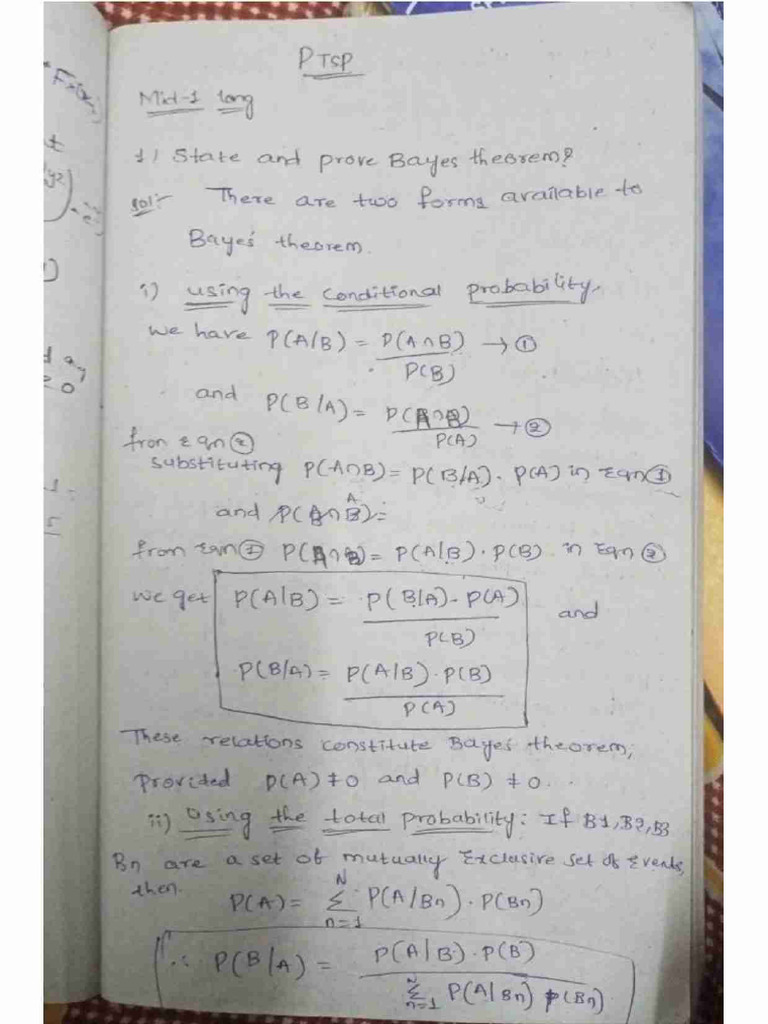 PTSP
Mid-1 long
1) State and prove Bayes theorem?
Sol:- There are two forms available to
Baye's theorem.
i) using the conditional probability.
we have P(A/B) = P(A∩B) → ①
P(B)
and P(B/A) = P(A∩B) → ②
P(A)
from Eqn ②
substituting P(A∩B) = P(B/A). P(A) in Eqn ①
and P(A∩B)=
from Eqn ① P(A∩B) = P(A|B). P(B) in Eqn ②
we get P(A|B) = P(B|A). P(A) and
P(B)
P(B/A) = P(A|B). P(B)
P(A)
These relations constitute Bayes' theorem,
Provided P(A) ≠ 0 and P(B) ≠ 0.
ii) Using the total probability: If B1, B2, B3
Bn are a set of mutually Exclusive set of Events,
then.
P(A) = N Σ n=1 P(A/Bn). P(Bn)
∴ P(B/A) = P(A|B). P(B)
Σ n=1 P(A|Bn) P(Bn)